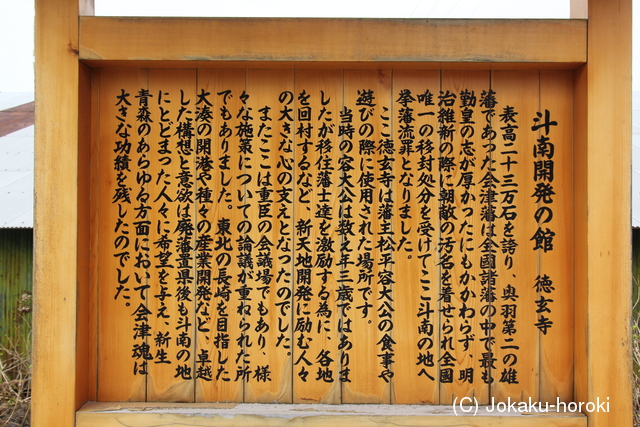 斗南開発の館　徳玄寺
表高二十三万石を誇り、奥羽第二の雄
藩であった会津藩は全國諸藩の中で最も
勤皇の志が厚かったにもかかわらず、明
治維新の際に朝敵の汚名を着せられ全國
唯一の移封処分を受けてここ斗南の地へ
挙藩流罪となりました。
ここ徳玄寺は藩主松平容大公の食事や
遊びの際に使用された場所です。
当時の容大公は数え年三歳ではありま
したが移住藩士達を激励する為に、各地
を回村するなど、新天地開発に励む人々
の大きな心の支えとなったのでした。
またここは重臣の会議場でもあり、様
々な施策についての論議が重ねられた所
でもありました。東北の長崎を目指した
大湊の開港や種々の産業開発など、卓越
した構想と意欲は廃藩置県後も斗南の地
にとどまった人々に希望を与え、新生
青森のあらゆる方面において会津魂は
大きな功績を残したのでした。
(C) Jokaku-horoki